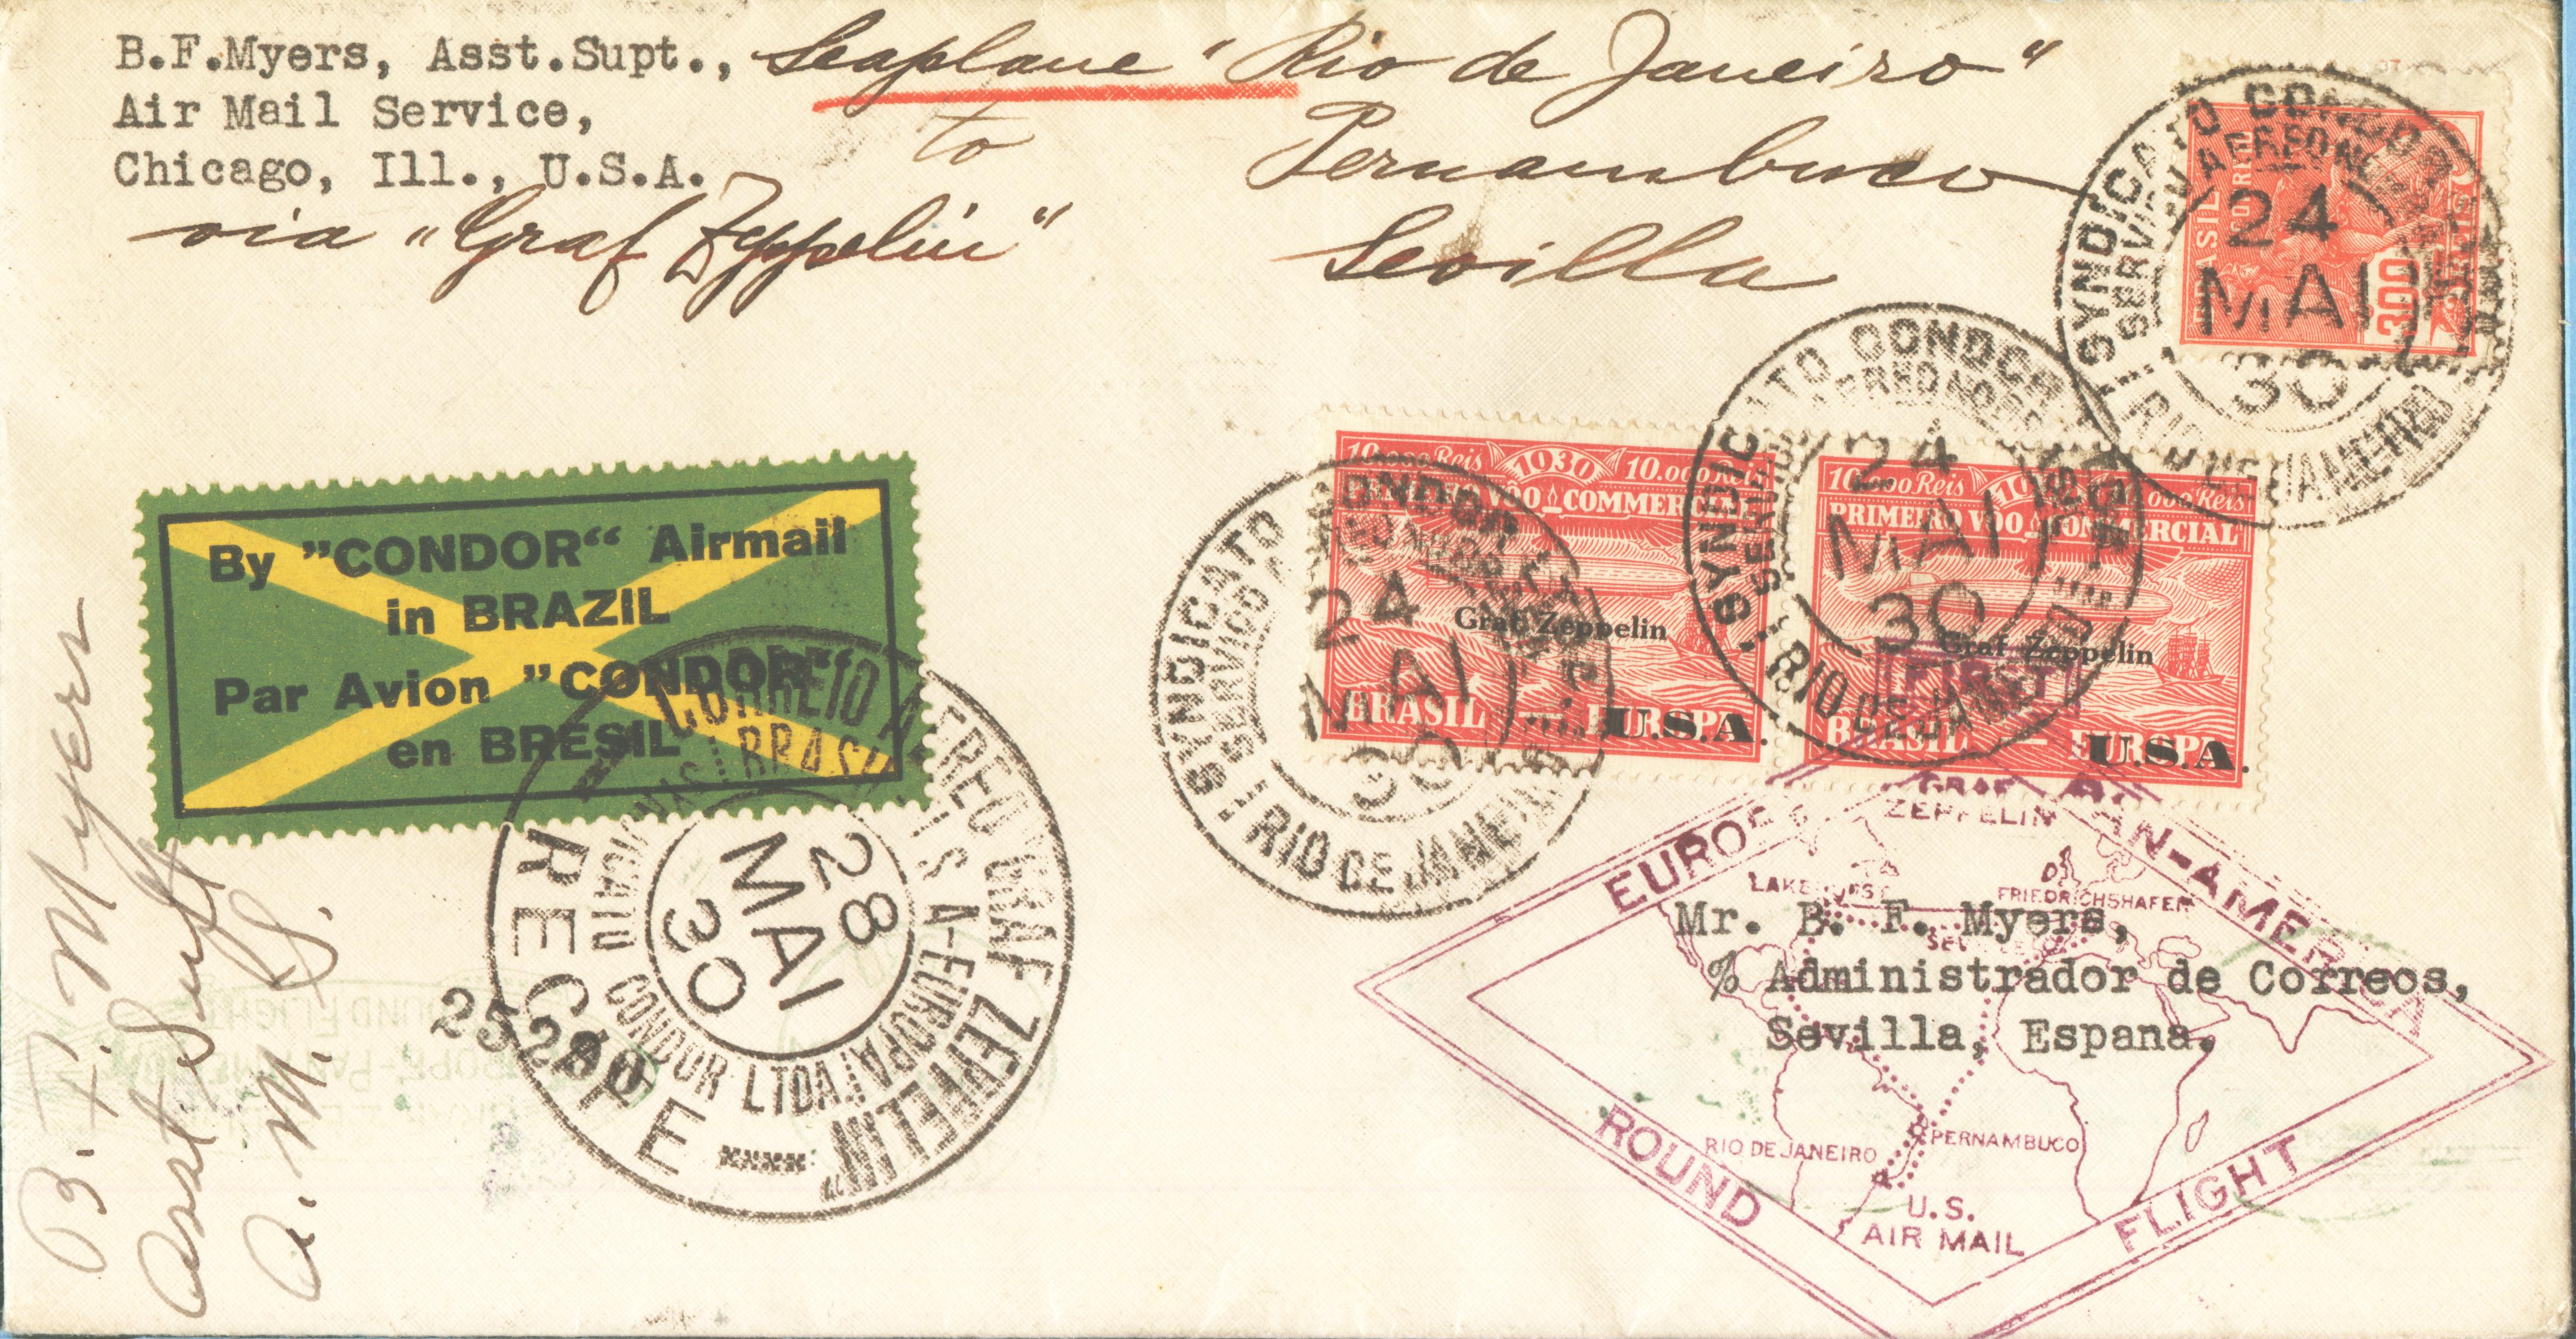 B.F.Myers, Asst.Supt.,
Air Mail Service,
Chicago, Ill., U.S.A.
Seaplane "Rio de Janeiro"
to Pernambuco
via "Graf Zeppelin" Sevilla
SYNDICATO CONDOR
24
MAI
30
RIO DE JANEIRO
BRASIL CORREIO
300 REIS
SYNDICATO CONDOR
SERVIÇO AEREO
24
MAI
30
RIO DE JANEIRO
10.000 Reis 1930 10.000 Reis
PRIMEIRO VÔO COMMERCIAL
Graf Zeppelin
BRASIL — EUROPA
U.S.A.
SYNDICATO CONDOR
SERVIÇO AEREO
24
MAI
30
RIO DE JANEIRO
10.000 Reis 1930 10.000 Reis
PRIMEIRO VÔO COMMERCIAL
Graf Zeppelin
BRASIL — EUROPA
U.S.A.
By "CONDOR" Airmail
in BRAZIL
Par Avion "CONDOR"
en BRESIL
CORREIO AEREO "GRAF ZEPPELIN"
SYNDICATO CONDOR LTDA.
28
MAI
30
RECIFE
25280
B. F. Myers
Asst Supt
A. M. S.
FIRST
EUROPE PAN-AMERICA
GRAF
ZEPPELIN
LAKEHURST
FRIEDRICHSHAFEN
SEVILLE
Mr. B. F. Myers,
% Administrador de Correos,
Sevilla, Espana.
RIO DE JANEIRO
PERNAMBUCO
U.S.
AIR MAIL
ROUND FLIGHT